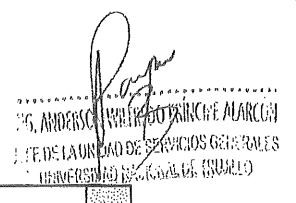 ING. ANDERSON WILFREDO PRÍNCIPE ALARCÓN
JEFE DE LA UNIDAD DE SERVICIOS GENERALES
UNIVERSIDAD NACIONAL DE TRUJILLO